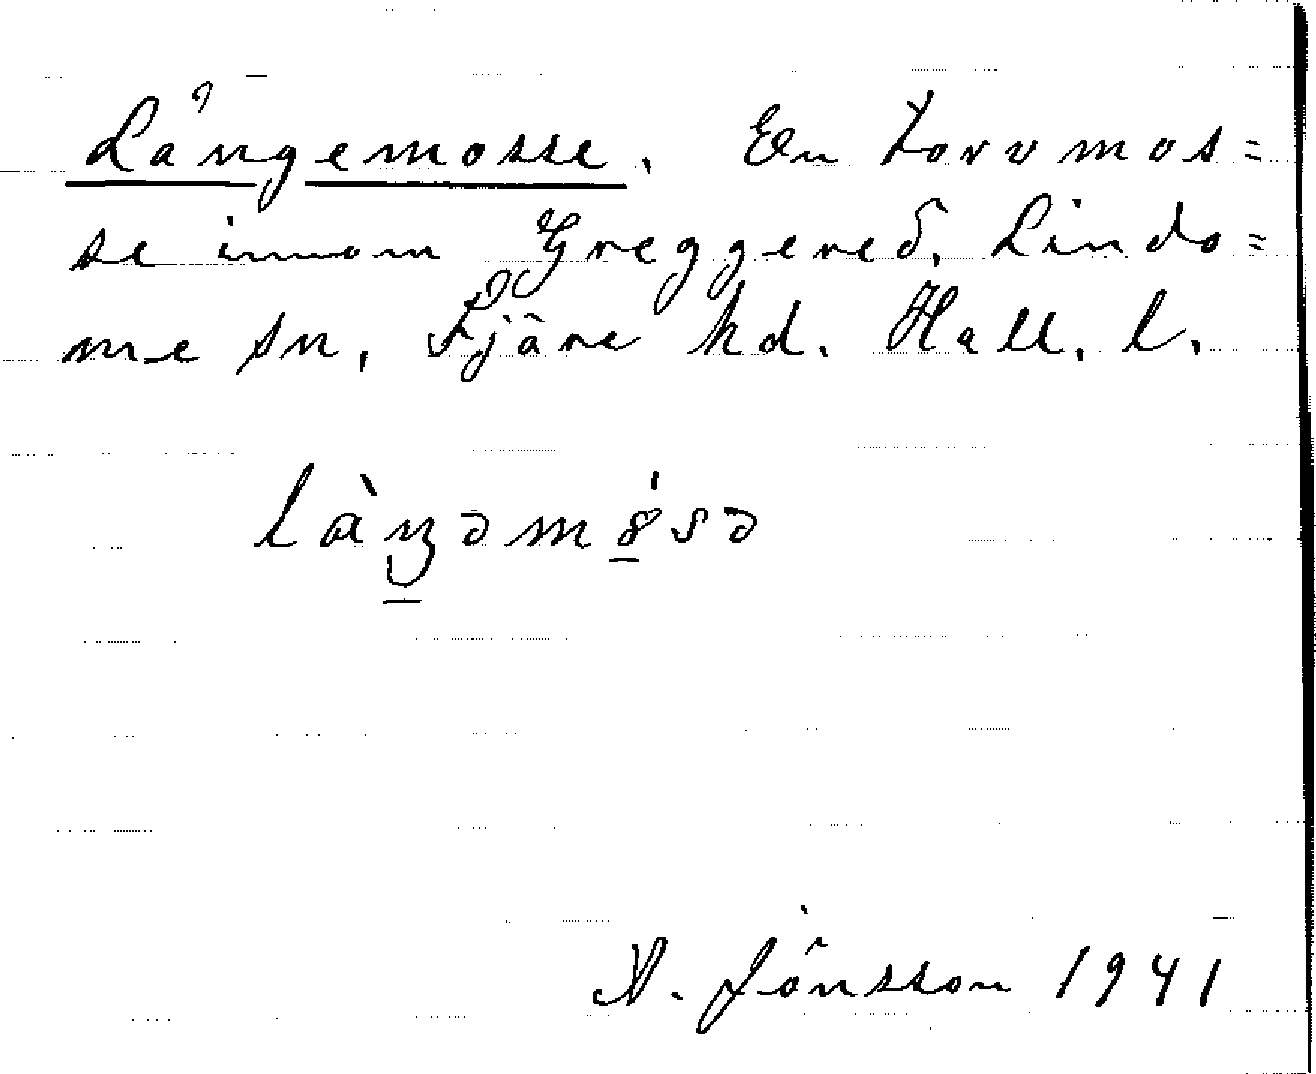 Långemosse. En torvmos=
se inom Greggered, Lindo=
me sn, Fjäre hd. Hall. l.
A. Jönsson 1941